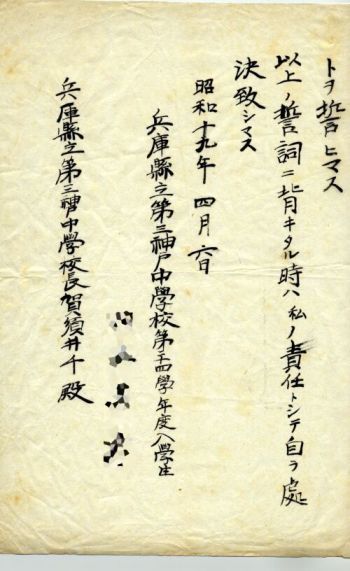 トヲ誓ヒマス
以上ノ誓詞ニ背キタル時ハ私ノ責任トシテ自ラ處
決致シマス
昭和十九年四月六日
兵庫縣立第三神戸中學校第二十四學年度入學生
兵庫縣立第三神戸中學校長賀須井千殿